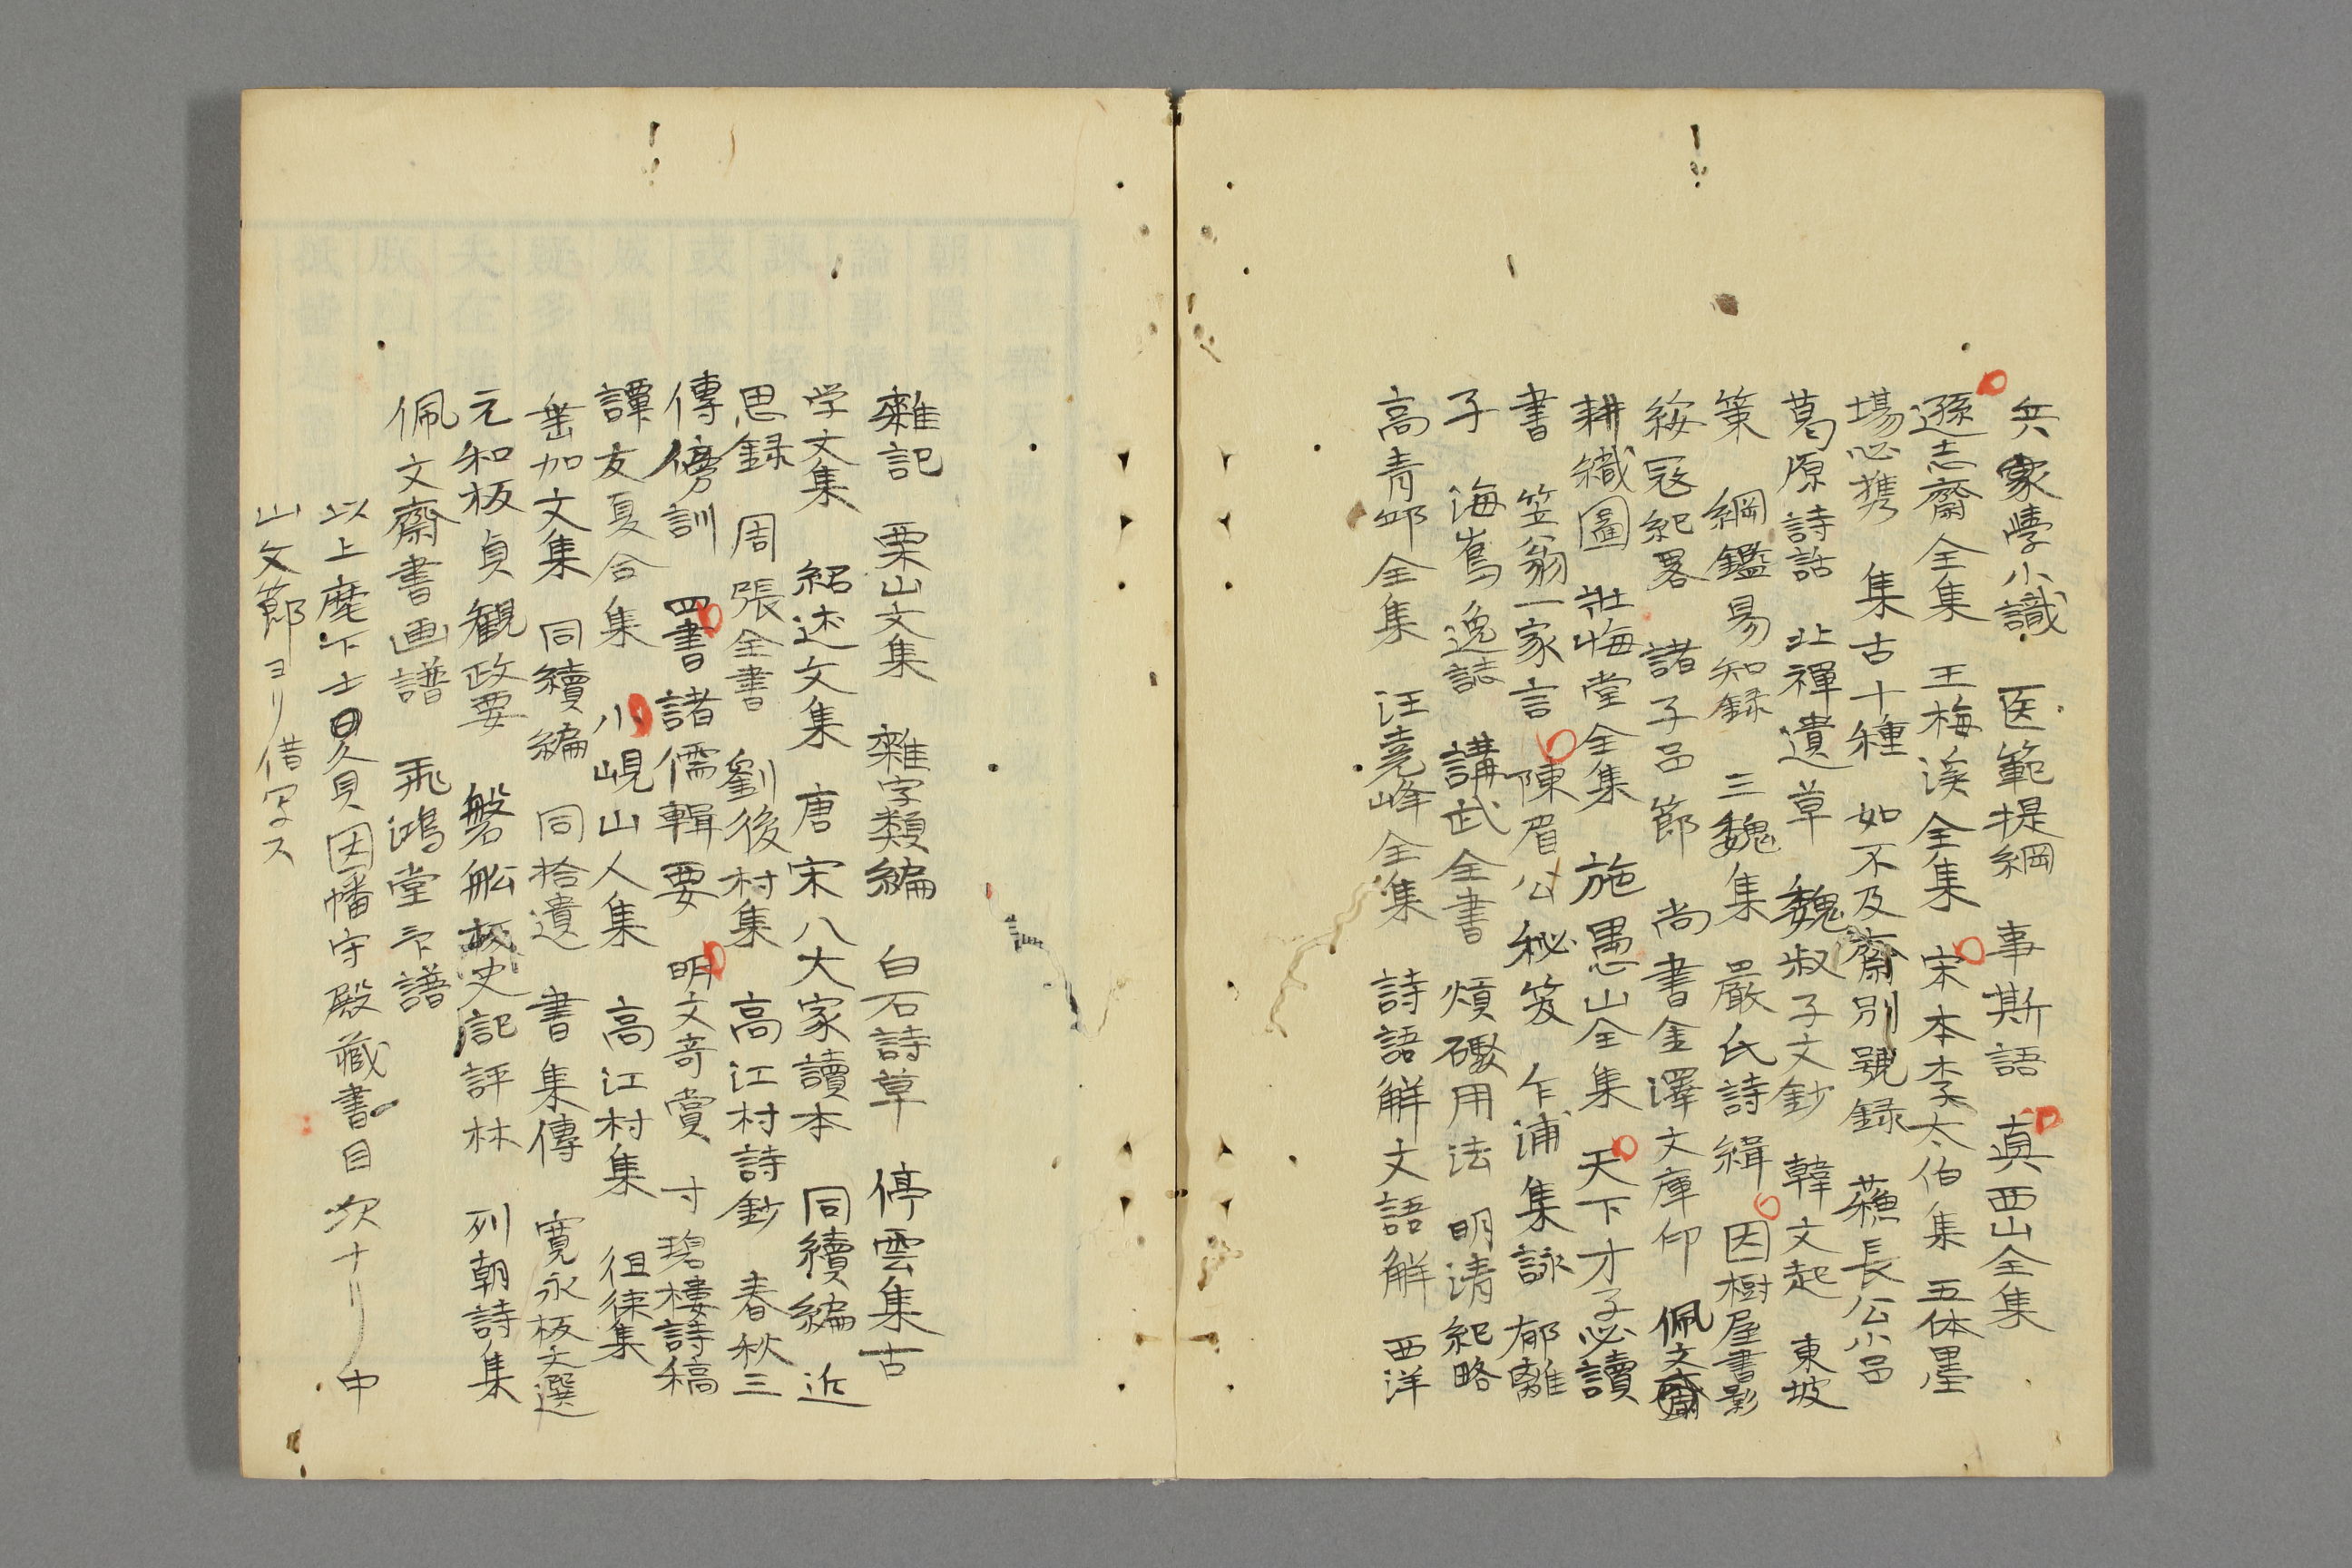 兵家學小識 医範提綱 事斯語 真西山全集
遜志齋全集 王梅溪全集 宋本李太伯集 五体墨
場必携 集古十種 如不及齋別號録 蘓長公小品
葛原詩話 北禪遺草 魏叔子文鈔 韓文起 東坡
策 綱鑑易知録 三魏集 嚴氏詩緝 因樹屋書影
綏冦紀畧 諸子品節 尚書金澤文庫印 佩文齋
耕織圖 壮悔堂全集 施愚山全集 天下才子必讀
書 笠翁一家言 陳眉公秘笈 乍浦集詠 郁離
子 海嶌逸誌 講武全書 煩礟用法 明清紀略
高青邱全集 汪堯峰全集 詩語解文語解 西洋
雜記 栗山文集 雜字類編 白石詩草 停雲集古
学文集 紹述文集 唐宋八大家讀本 同續編 近
思録 周張全書 劉後村集 高江村詩鈔 春秋三
傳傍訓 四書諸儒輯要 明文奇賞 寸碧樓詩稿
譚友夏合集 小峴山人集 高江村集 徂徠集
垂加文集 同續編 同拾遺 書集傳 寛永板文選
元和板貞観政要 盤舩板史記評林 列朝詩集
佩文齋書画譜 飛鴻堂印譜
以上麾下士久貝因幡守殿藏書目次ナリ中
山文節ヨリ借写ス